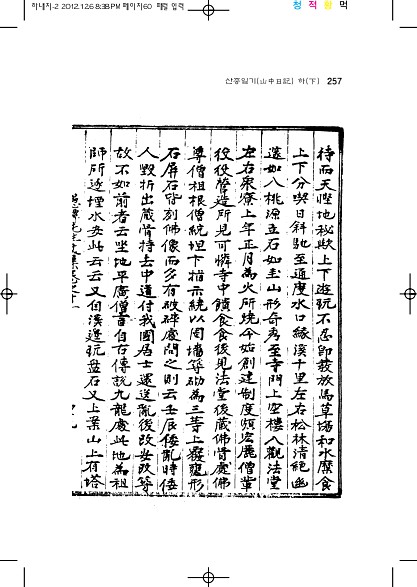 하내지-2 2012.12.6 8:38 PM 페이지60 패럴 입력
청 적 황 먹
산중일기(山中日記) 하(下) 257
待而天慳地秘歟上下遊玩不忍卽發放馬草場和水糜食
上下分喫日斜馳至通度水口緣溪十里左右松林淸絶幽
邃如八桃源立石如圭山形奇秀至寺門上空樓入觀法堂
左右泉寮上年正月爲火所燒今始創建制度頗宏麗僧輩
役役營造所見可憐寺中饋食食後見法堂後藏佛骨處佛
尊僧祖根僧統坦卞指示繞以周墻等砌爲三等上養龍形
石屛石皆刻佛像而多有破碎處問之則云壬辰倭亂時倭
人毁折出藏骨持去中道付我國居士還送亂後改安改等
故不如前者云坐地平廣僧言自古傳說九龍處此地爲祖
師所逐埋水安此云云又自溪邊玩盤石又上梁山上有塔